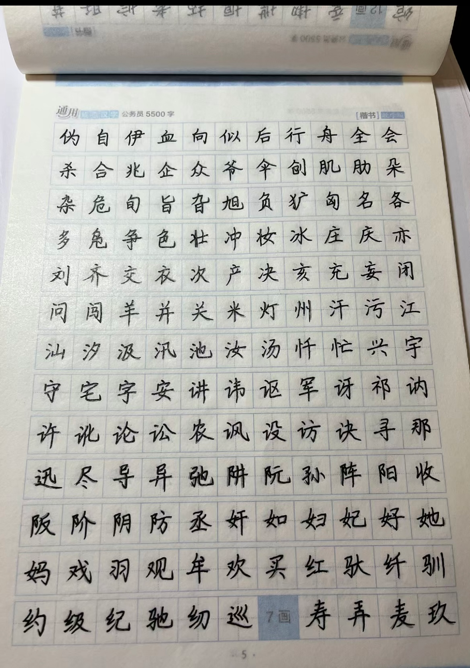 通川 公务员5500字 [楷书]
伪自伊血向似后行舟全会
杀合兆企众爷伞创肌肋朵
杂危旬旨旮旭负犷匈名各
多凫争色壮冲妆冰庄庆亦
刘齐交衣次产决亥充妄闭
问闯羊并关米灯州汗污江
汕汐汲汛池汝汤忏忙兴宇
守宅字安讲讳讴军讶祁讷
许讹论讼农讽设访诀寻那
迅尽导异弛阱阮孙阵阳收
阪阶阴防丞奸如妇妃好她
妈戏羽观牟欢买红驮纤驯
约级纪驰纫巡7画寿弄麦玖
5